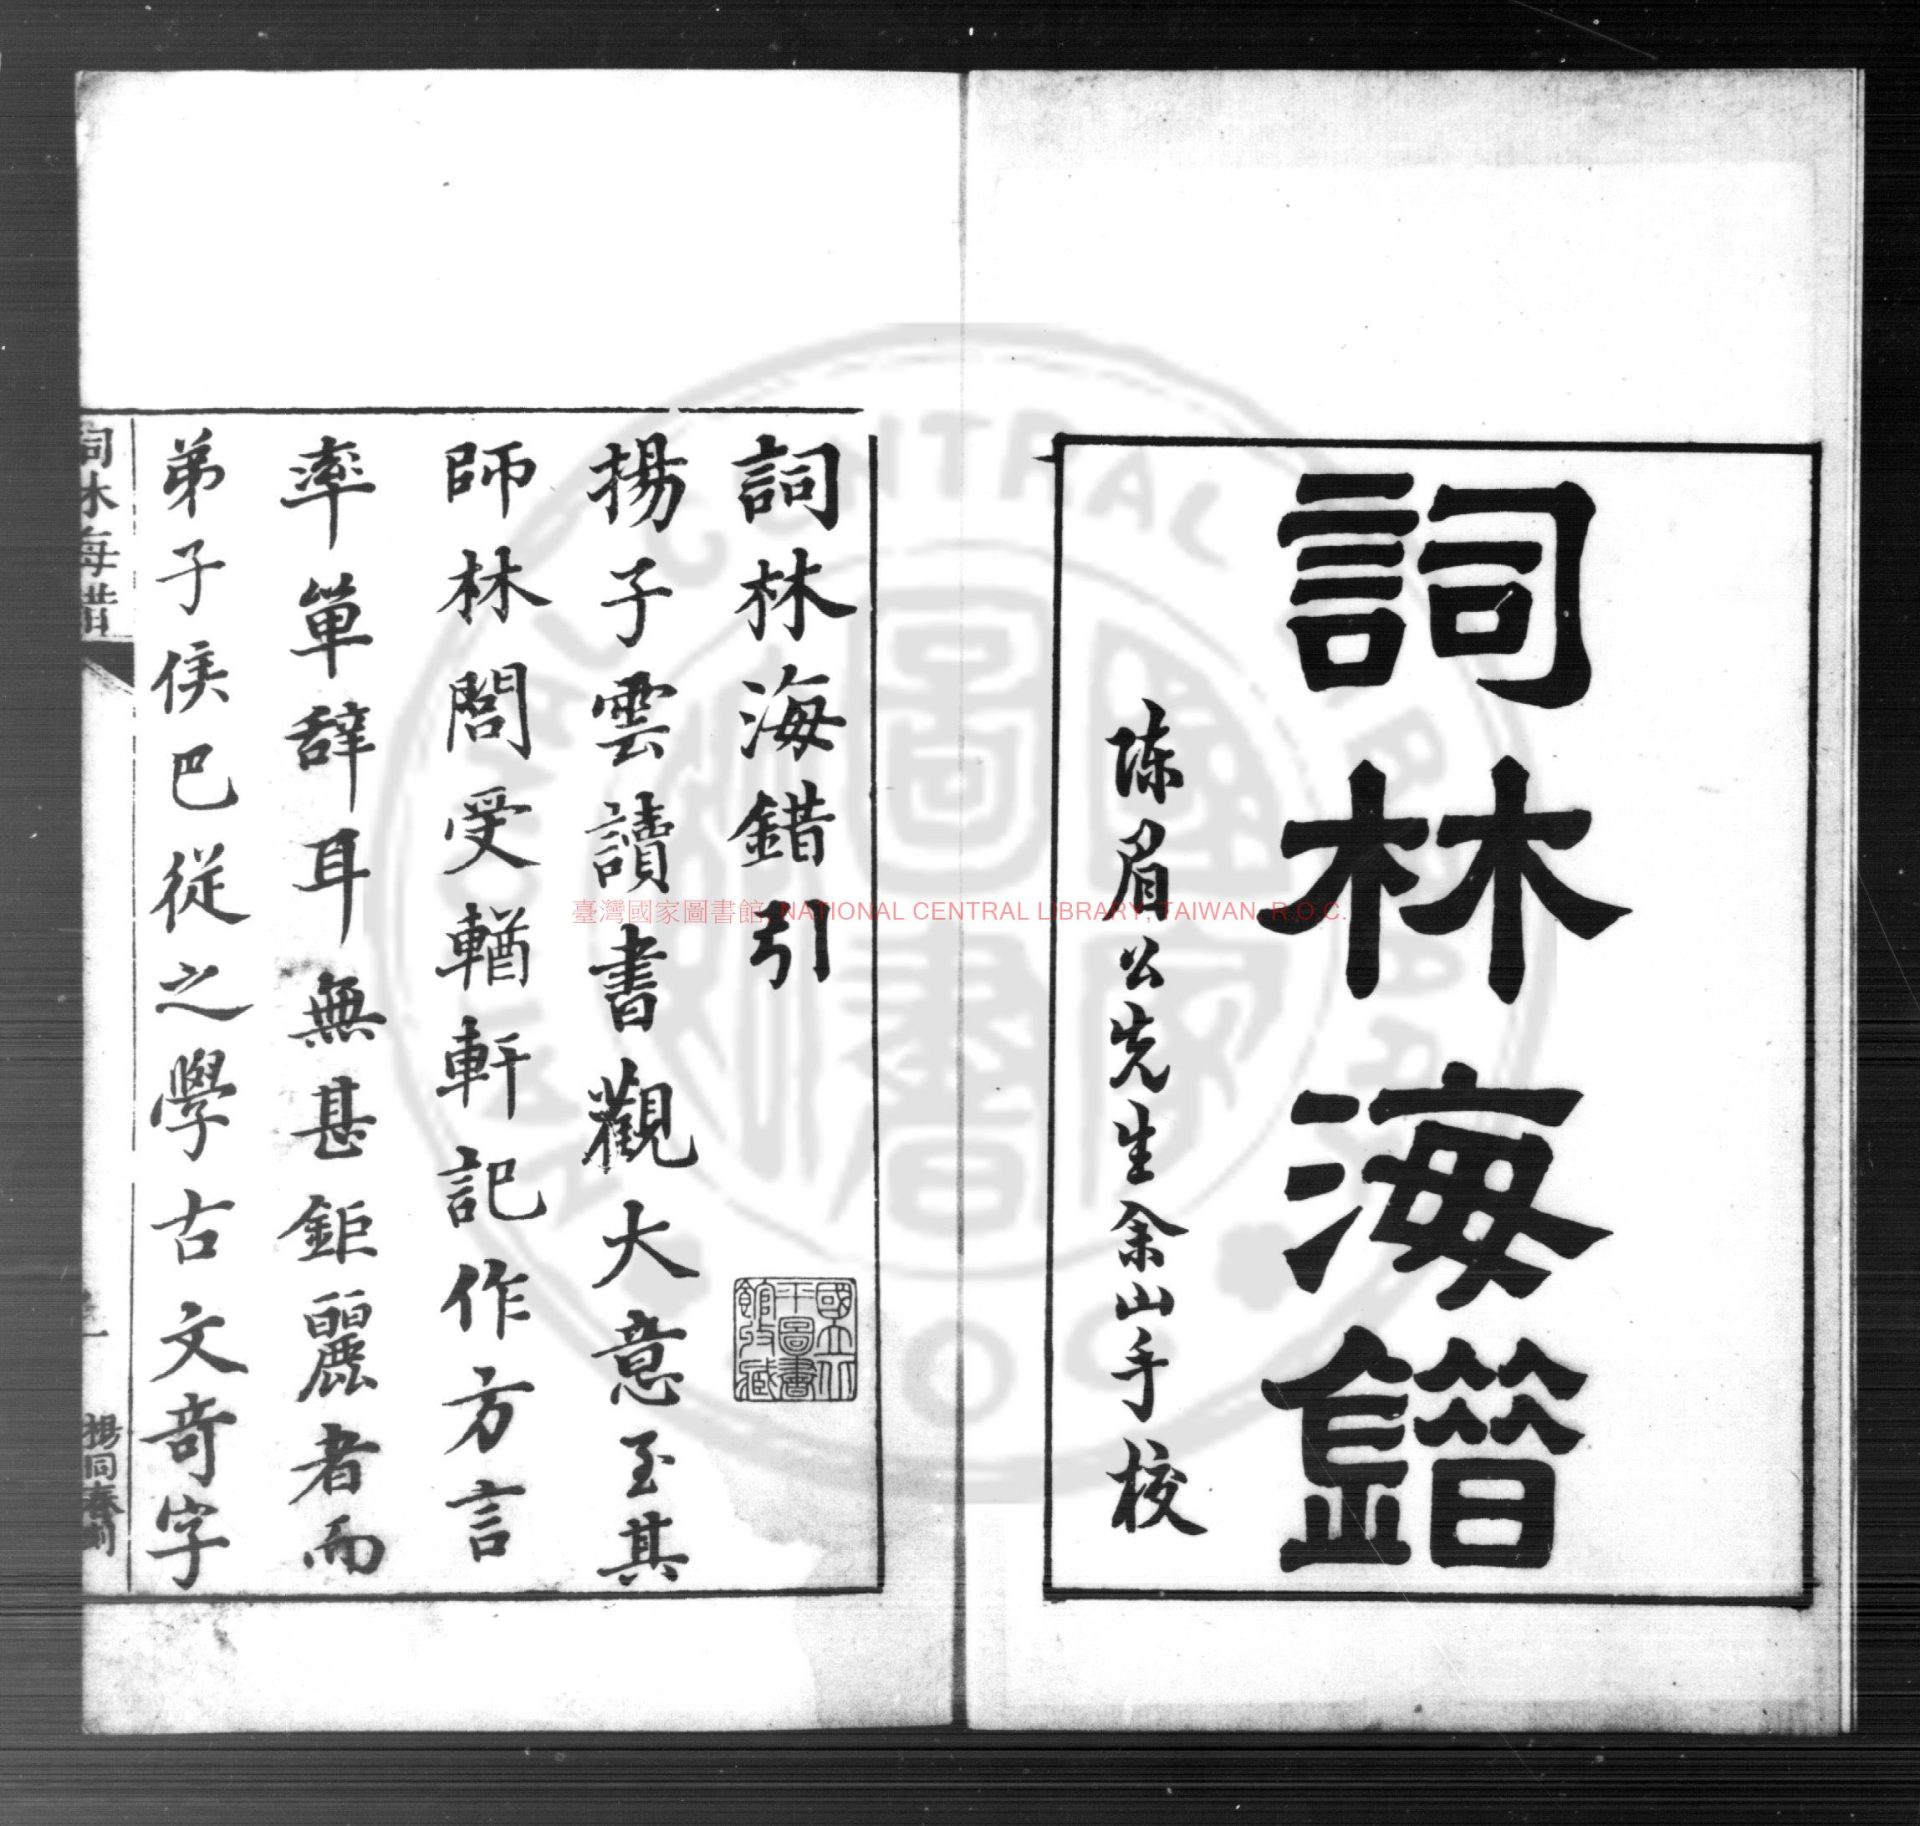 詞林海錯
陳眉公先生佘山手校
詞林海錯引
揚子雲讀書觀大意至其
師林閭受輶軒記作方言
率單辭耳無甚鉅麗者而
弟子侯巴從之學古文奇字
詞林海錯
國立北
平圖書
館收藏
臺灣國家圖書館, NATIONAL CENTRAL LIBRARY, TAIWAN, R.O.C.
NATIONAL CENTRAL LIBRARY
R.O.C.